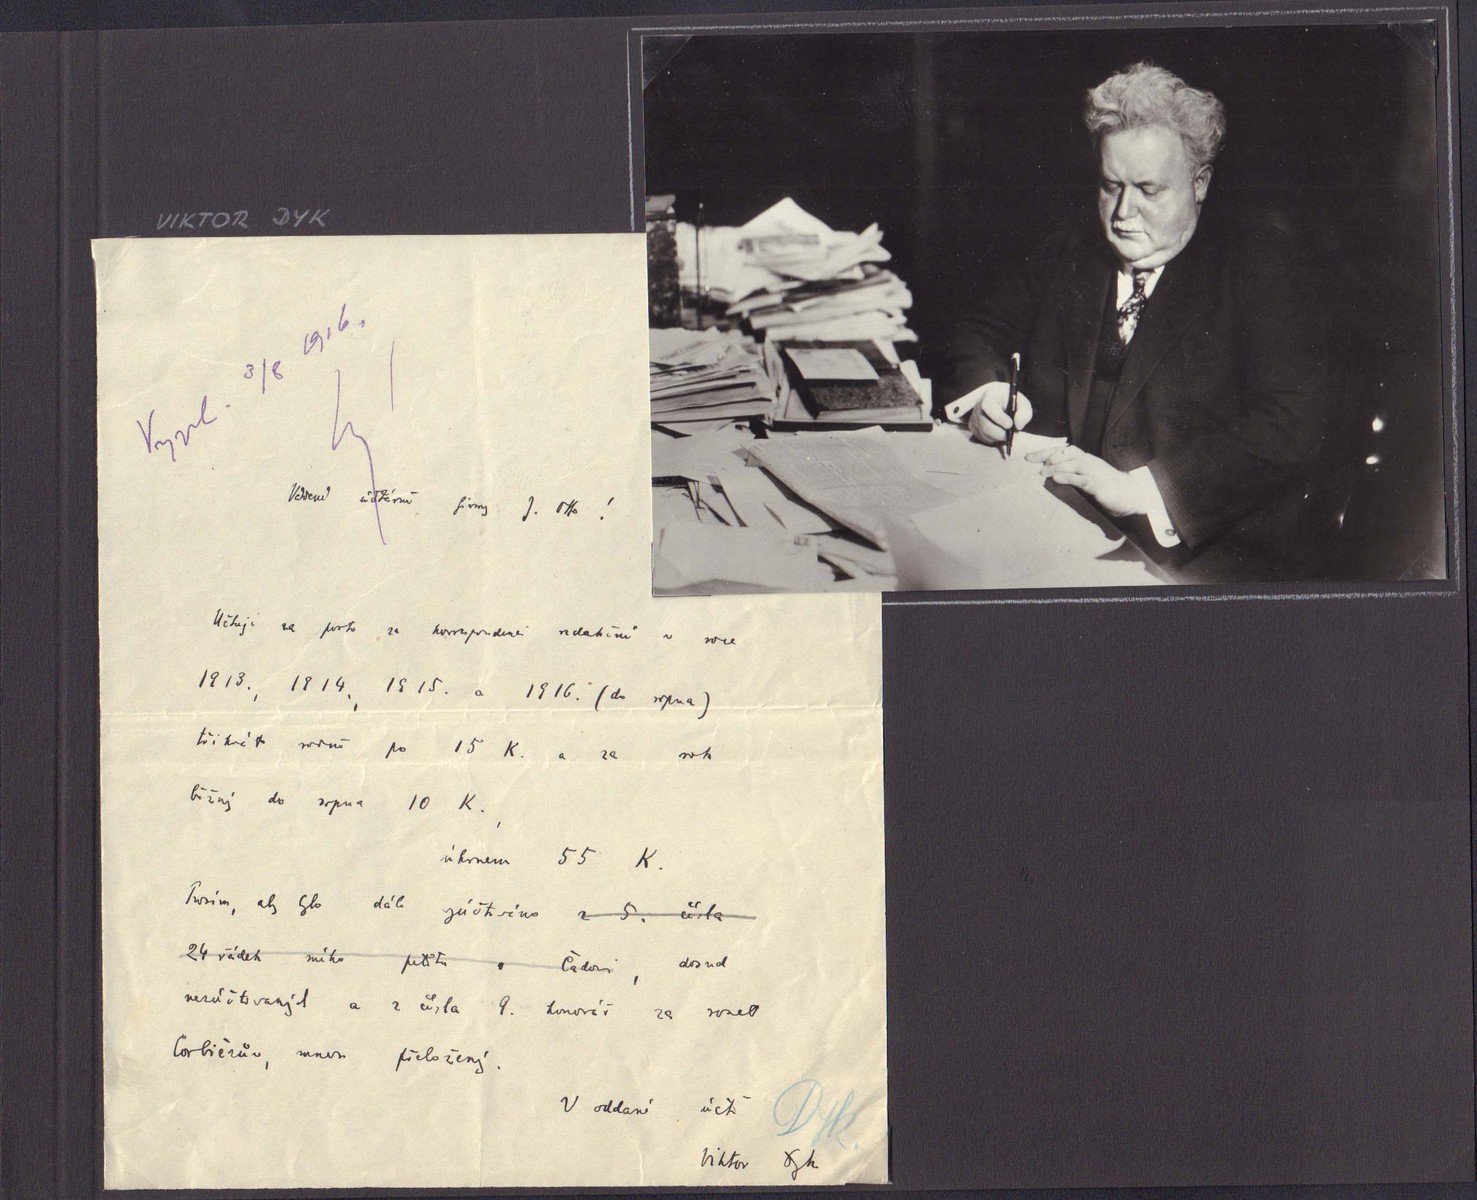 VIKTOR DYK
Vypl. 3/8 1916.
Vážené účtárně firmy J. Otto!
Účtuji za porto za korrespondenci redakční v roce
1913., 1914., 1915. a 1916. (do srpna)
třikrát ročně po 15 K. a za rok
běžný do srpna 10 K.,
úhrnem 55 K.
Prosím, aby bylo dále zúčtováno z 5. čísla
24 řádek mého petitu o Čadovi, dosud
nezúčtovaných a z čísla 9. honorář za sonet
Corbièrův, mnou přeložený.
V oddané úctě
Dyk.
Viktor Dyk